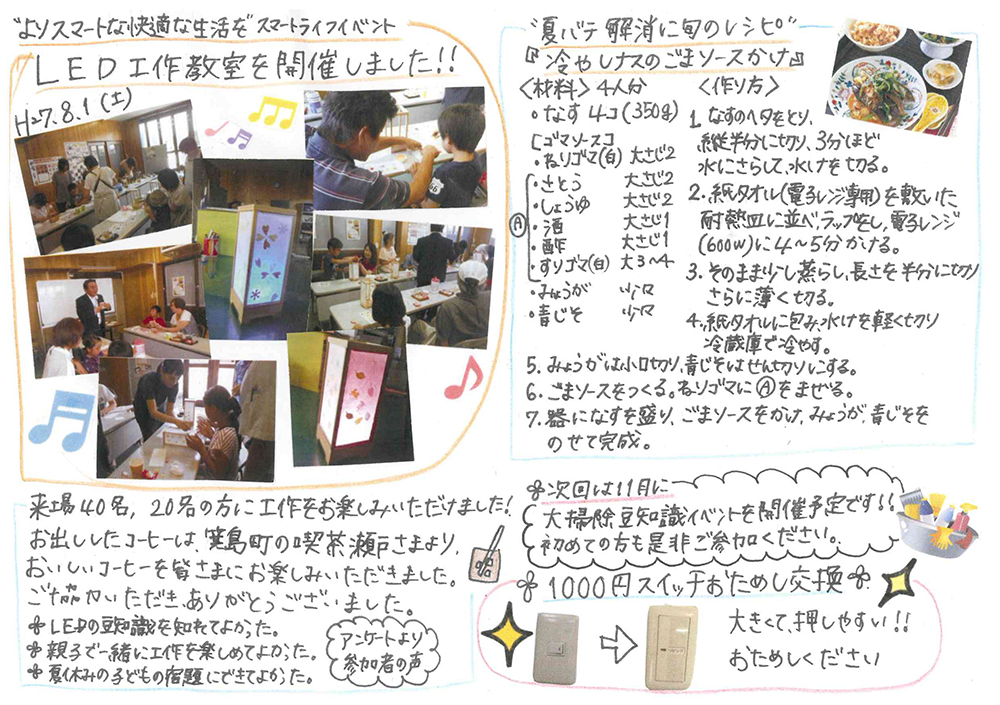 "よりスマートな快適な生活を" スマートライフイベント
LED工作教室を開催しました!!
H27.8.1(土)
来場40名, 20名の方に工作をお楽しみいただけました!
お出ししたコーヒーは、箕島町の喫茶瀬戸さまより、
おいしいコーヒーを皆さまにお楽しみいただきました。
ご協力いただき、ありがとうございました。
LEDの豆知識を知れてよかった。
親子で一緒に工作を楽しめてよかった。
夏休みの子どもの宿題にできてよかった。
アンケートより
参加者の声
"夏バテ解消に旬のレシピ"
『冷やしナスのごまソースかけ』
〈材料〉4人分
・なす 4コ(350g)
[ゴマソース]
・ねりゴマ(白) 大さじ2
Ⓐ
・さとう 大さじ2
・しょうゆ 大さじ2
・酒 大さじ1
・酢 大さじ1
・すりゴマ(白) 大3〜4
・みょうが 少々
・青じそ 少々
〈作り方〉
1. なすのヘタをとり、
縦半分に切り、3分ほど
水にさらして、水けを切る。
2. 紙タオル(電子レンジ専用)を敷いた
耐熱皿に並べ、ラップをし、電子レンジ
(600W)に4〜5分かける。
3. そのまま少し蒸らし、長さを半分に切り
さらに薄く切る。
4. 紙タオルに包み、水けを軽く切り
冷蔵庫で冷やす。
5. みょうがは小口切り、青じそはせん切りにする。
6. ごまソースをつくる。ねりゴマにⒶをまぜる。
7. 器になすを盛り、ごまソースをかけ、みょうが、青じそを
のせて完成。
次回は11月に
大掃除豆知識イベントを開催予定です!!
初めての方も是非ご参加ください。
1000円スイッチおためし交換
大きくて、押しやすい!!
おためしください